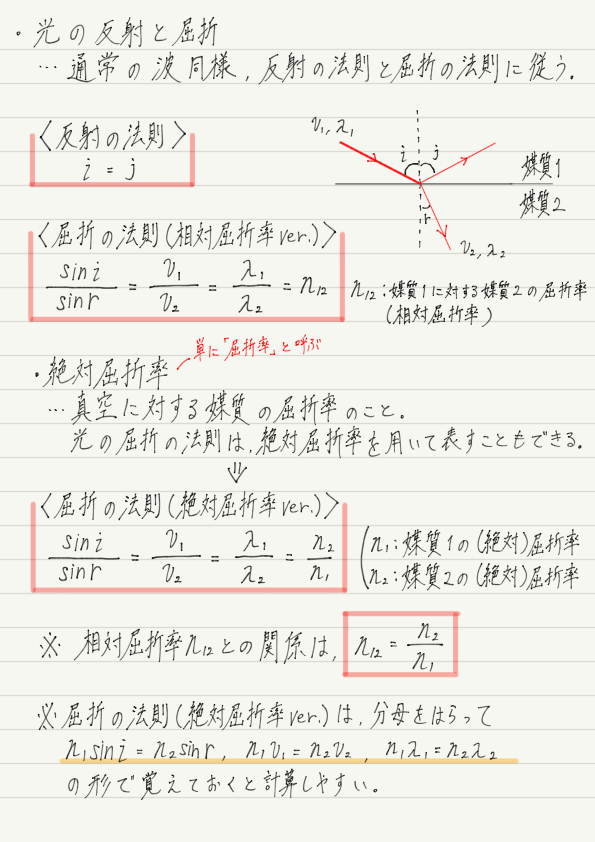 ・光の反射と屈折
…通常の波同様,反射の法則と屈折の法則に従う.
〈反射の法則〉
i = j
v₁, λ₁
i
j
媒質1
媒質2
r
v₂, λ₂
〈屈折の法則(相対屈折率ver.)〉
sin i / sin r = v₁ / v₂ = λ₁ / λ₂ = n₁₂
n₁₂:媒質1に対する媒質2の屈折率
(相対屈折率)
・絶対屈折率
単に「屈折率」と呼ぶ
…真空に対する媒質の屈折率のこと.
光の屈折の法則は,絶対屈折率を用いて表すこともできる.
⇓
〈屈折の法則(絶対屈折率ver.)〉
sin i / sin r = v₁ / v₂ = λ₁ / λ₂ = n₂ / n₁
n₁:媒質1の(絶対)屈折率
n₂:媒質2の(絶対)屈折率
※ 相対屈折率n₁₂との関係は, n₁₂ = n₂ / n₁
※屈折の法則(絶対屈折率ver.)は,分母をはらって
n₁sin i = n₂sin r, n₁v₁ = n₂v₂, n₁λ₁ = n₂λ₂
の形で覚えておくと計算しやすい。